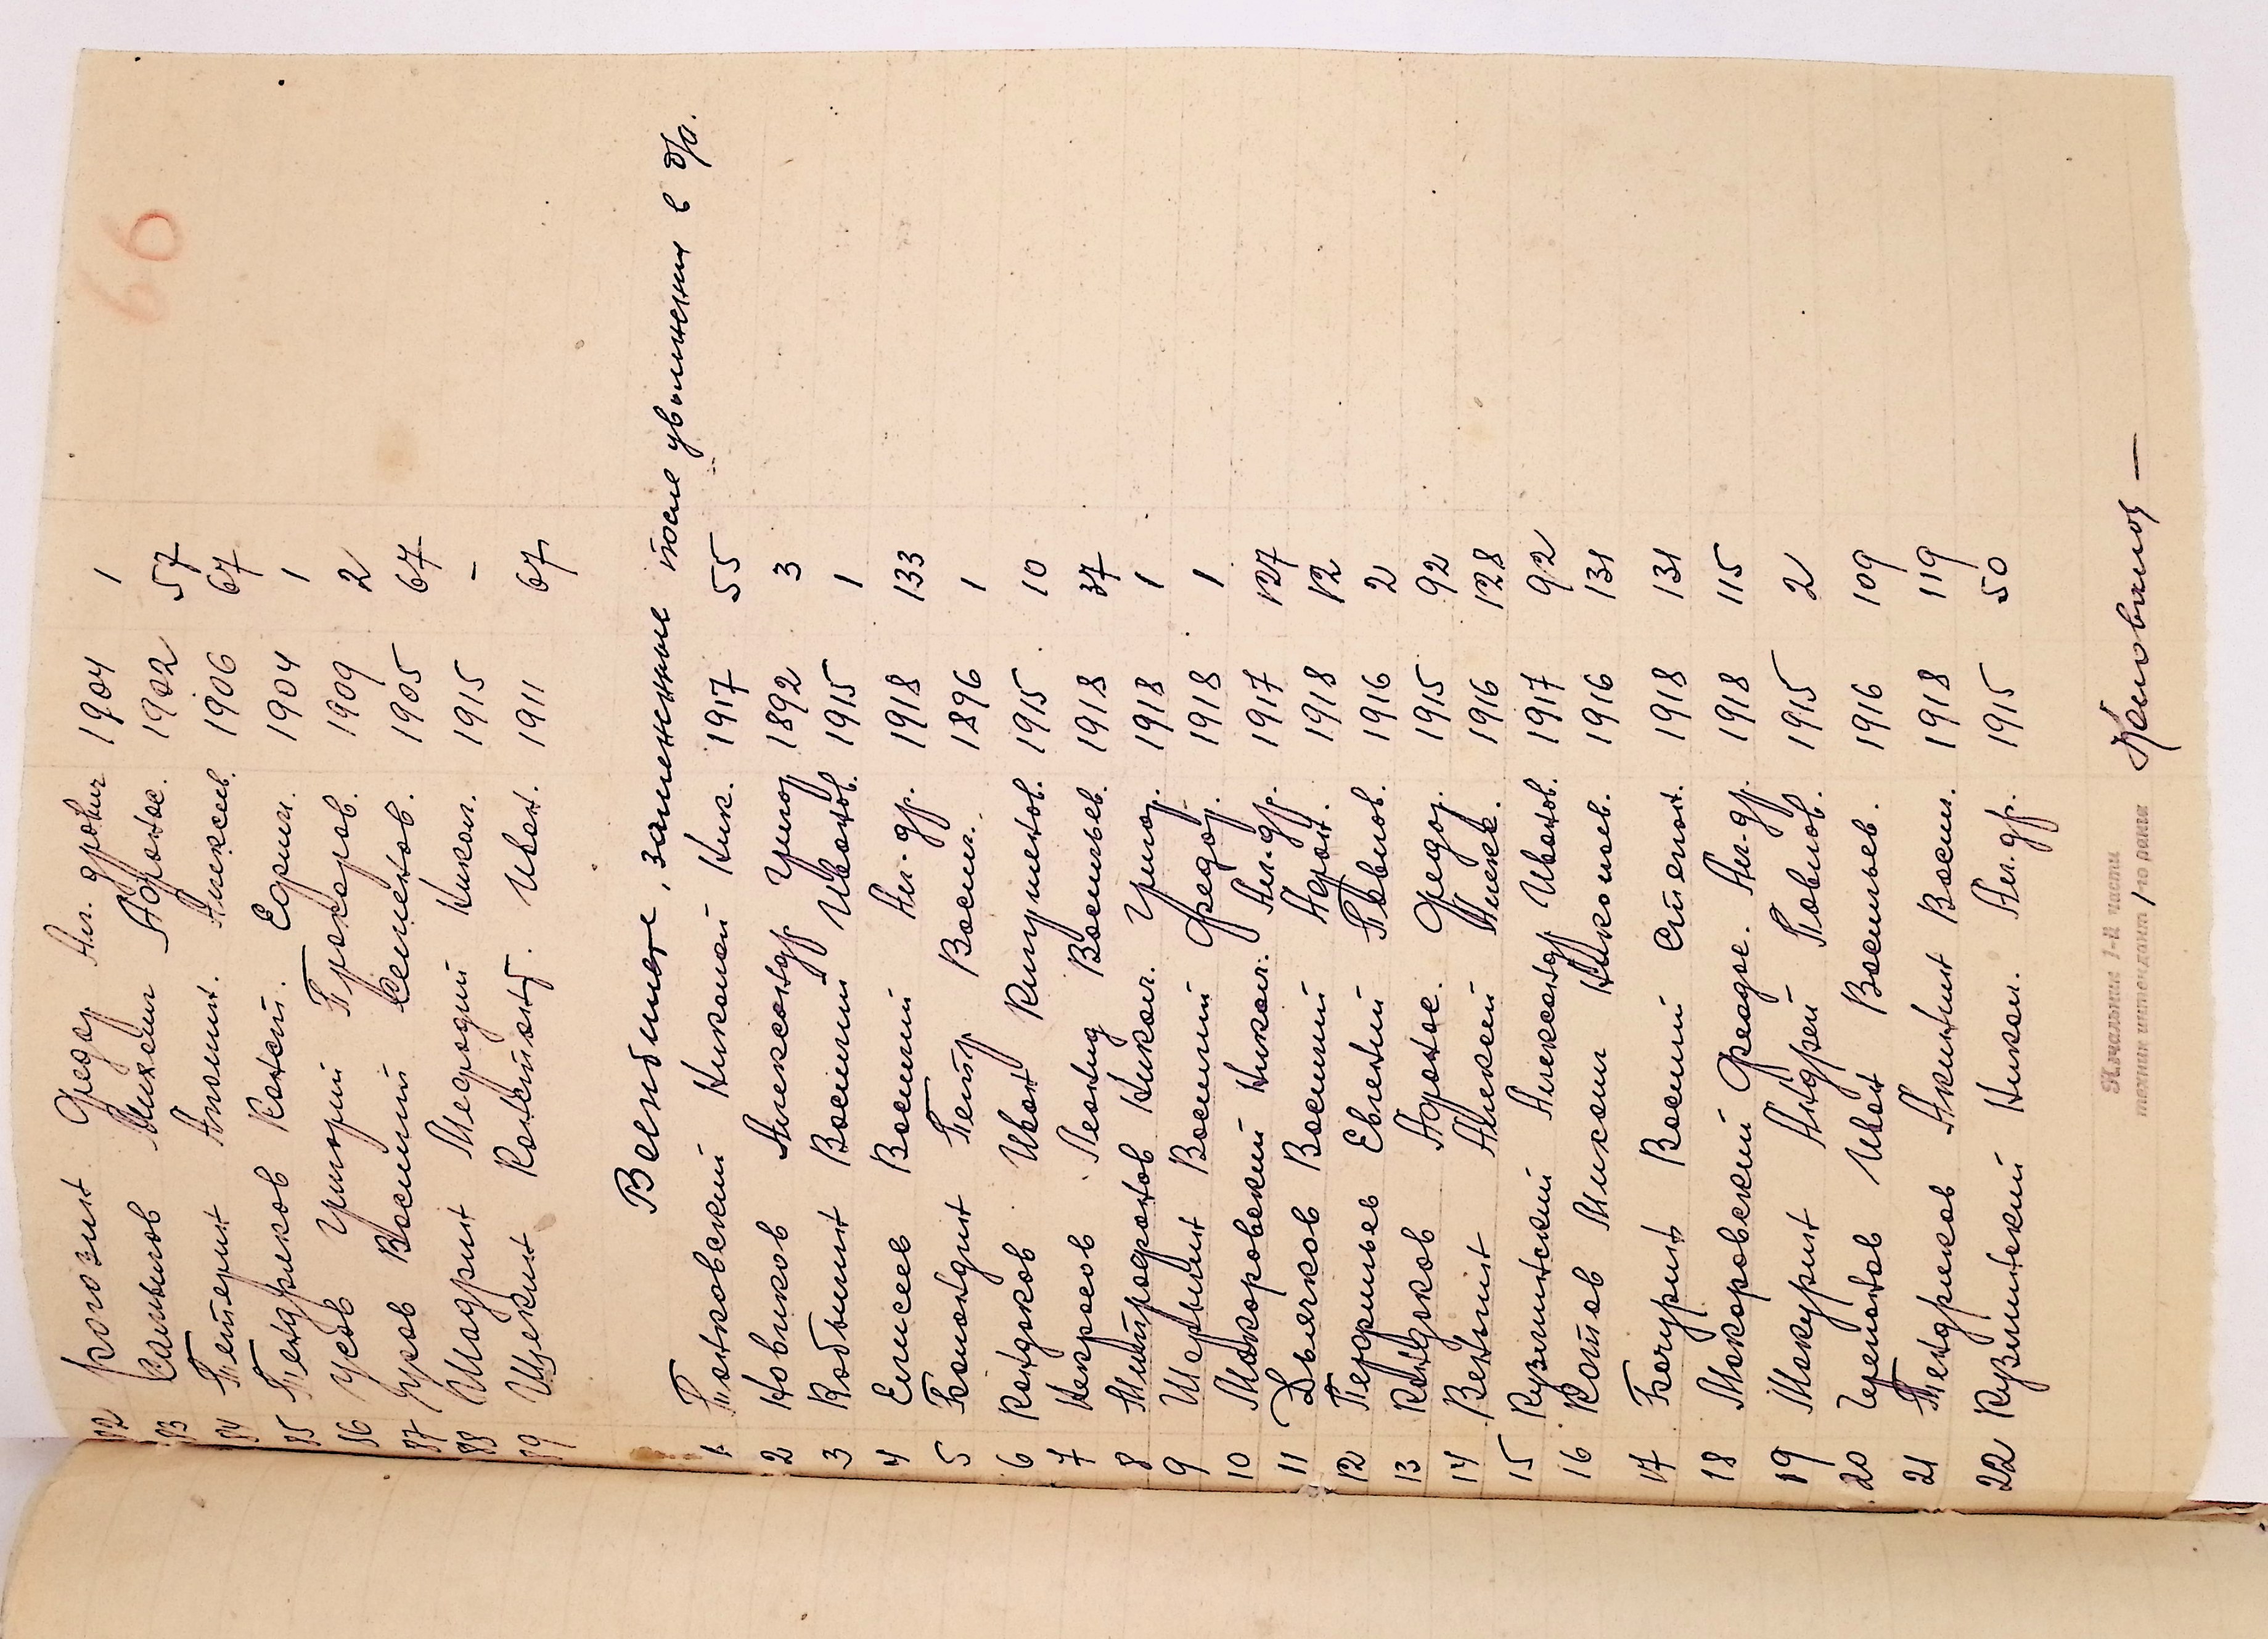 66
82 Рогозин Федор Ал-дрович 1904 1
83 Самылов Михаил Афонас. 1902 57
84 Петерин Аполин. Алексеев. 1906 67
85 Пендриков Констн. Ефрим. 1904 1
86 Усов Григорий Прокоров. 1909 2
87 Уров Василий Семенов. 1905 67
88 Шадрин Мефодий Никол. 1915 -
89 Щекин Констант. Иван. 1911 67
Всенобщее, зачисленные после увольнения в д/о.
1 Панковский Николай Ник. 1917 55
2 Новиков Александр Григор 1892 3
3 Кобылин Василий Иванов. 1915 1
4 Елисеев Василий Ал-др. 1918 133
5 Баландин Петр Васил. 1896 1
6 Кондаков Иван Климентов. 1915 10
7 Некрасов Леонид Васильев. 1918 37
8 Митрофанов Никол. Григор. 1918 1
9 Шарыгин Василий Федор. 1918 1
10 Макаровский Никол. Ал-др. 1917 127
11 Дьячков Василий Афон. 1918 12
12 Перфильев Евгений Павлов. 1916 2
13 Кондаков Афонас. Федор. 1915 92
14 Венгин Алексей Алекс. 1916 128
15 Кузминский Александр Иванов. 1917 92
16 Котов Михаил Николаев. 1916 131
17 Бачурин Василий Степан. 1918 131
18 Макаровский Феодос. Ал-др. 1918 115
19 Макурин Андрей Павлов. 1915 2
20 Черепанов Иван Васильев. 1916 109
21 Пендриков Акиндин Васил. 1918 119
22 Кузминский Никол. Ал-др. 1915 50
Начальник 1-й части
техник интендант 1-го ранга